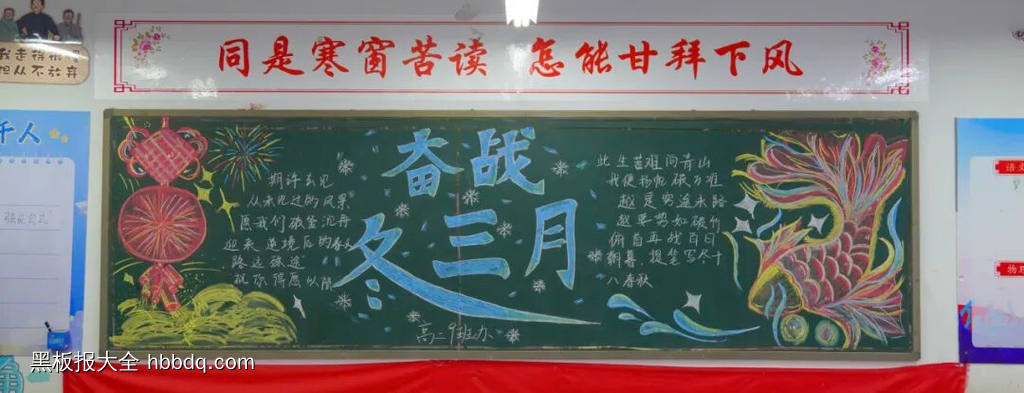 同是寒窗苦读 怎能甘拜下风
但从不放弃
千人
奋战
冬三月
期许去见
从未见过的风景
愿我们破釜沉舟
迎来逆境后的春天
路远旅途
祝你得愿以偿
此生苦难同青山
我便扬帆破万难
越是穷途末路
越要势如破竹
俯首再战百日
朝暮,提笔写尽十
八春秋
高二9班办
语文
物理
黑板报大全 hbbdq.com